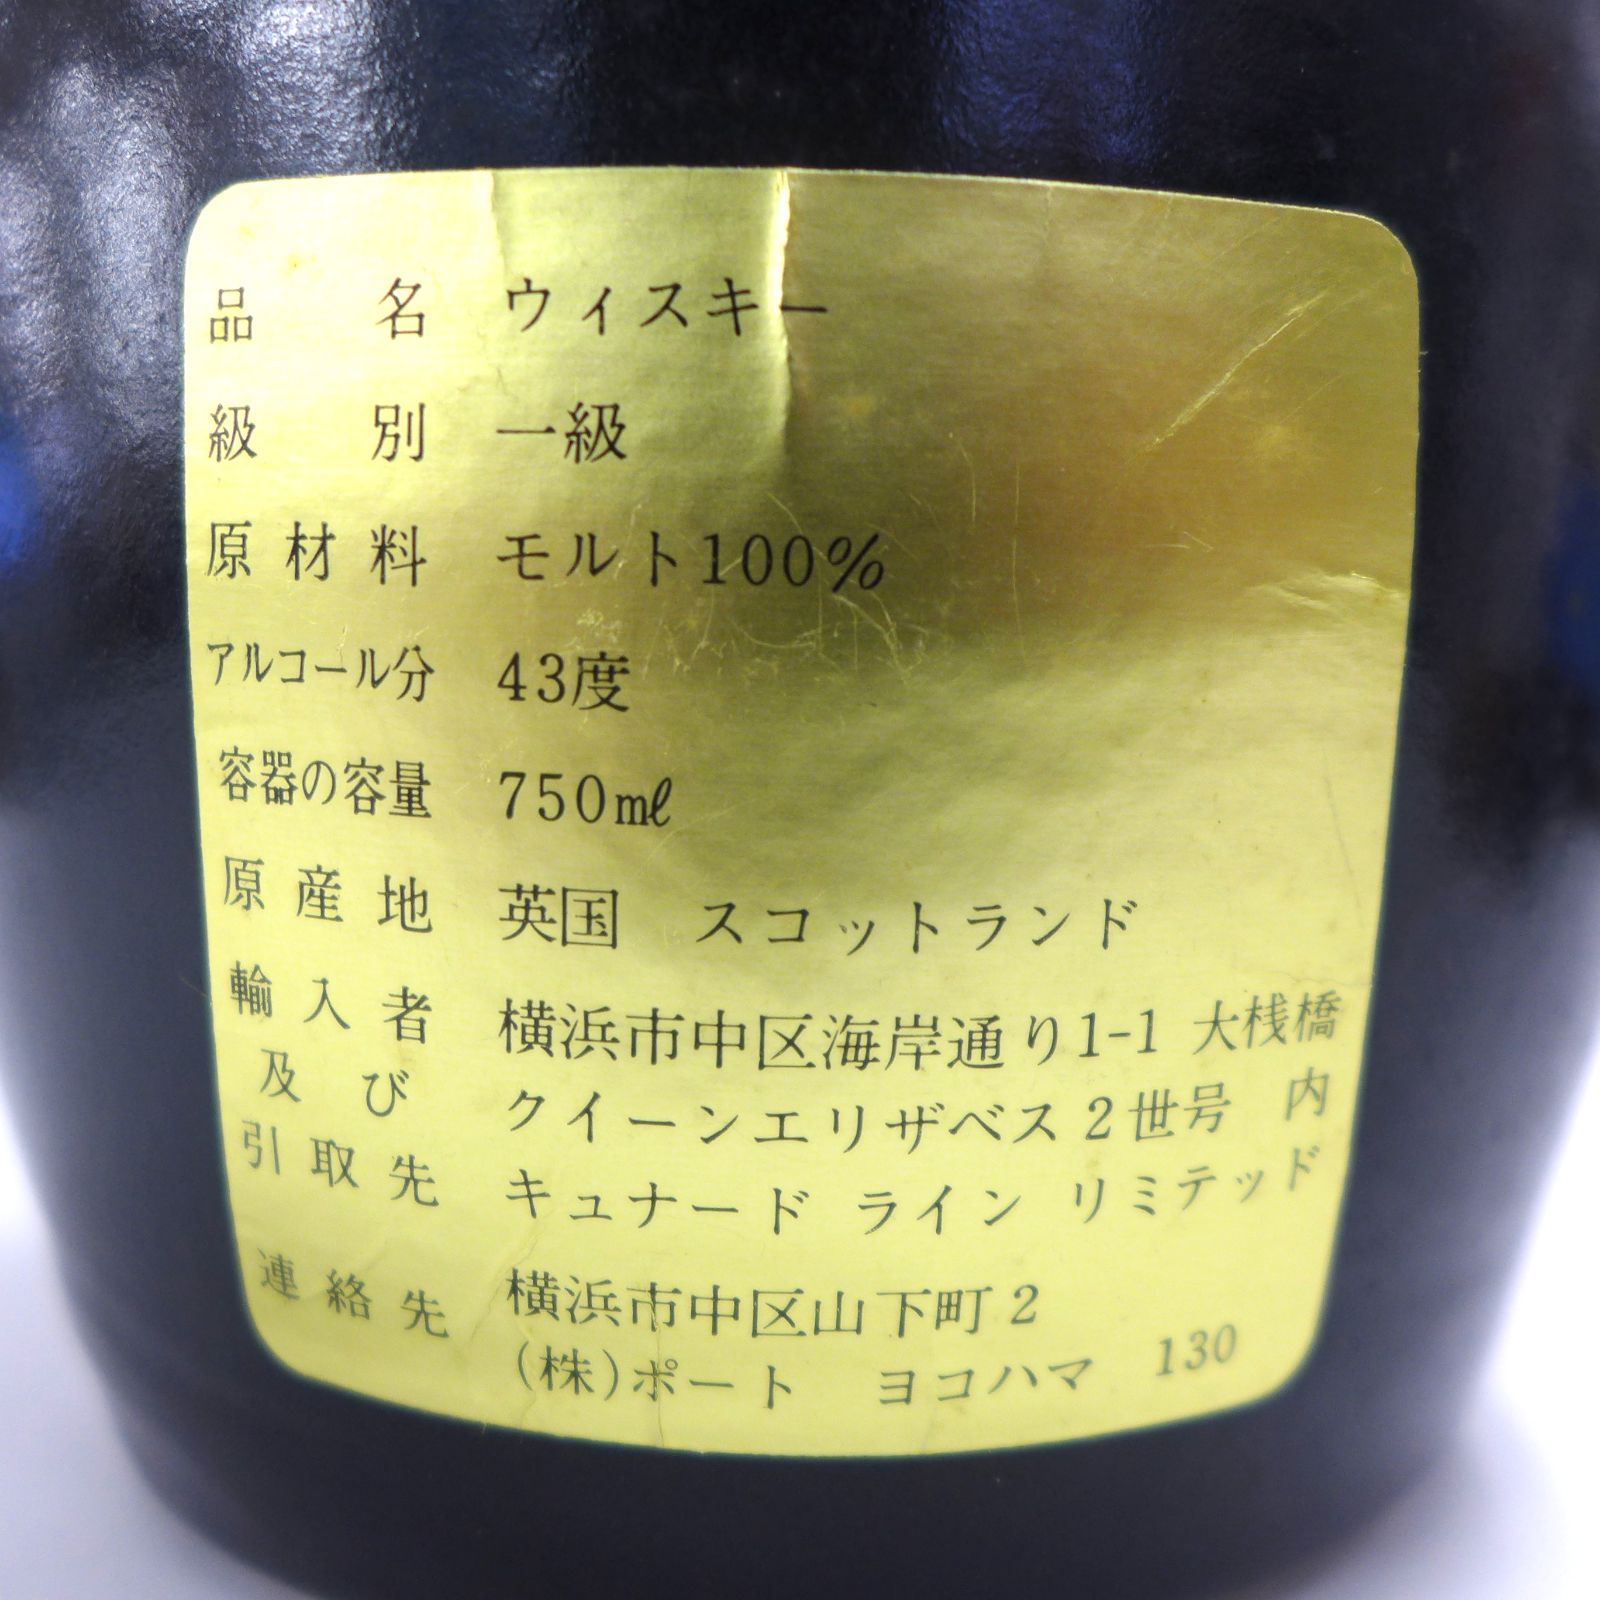 品名 ウィスキー
級別 一級
原材料 モルト100%
アルコール分 43度
容器の容量 750ml
原産地 英国 スコットランド
輸入者 横浜市中区海岸通り1-1 大桟橋
及び クイーンエリザベス2世号 内
引取先 キュナード ライン リミテッド
連絡先 横浜市中区山下町2
(株)ポート ヨコハマ 130